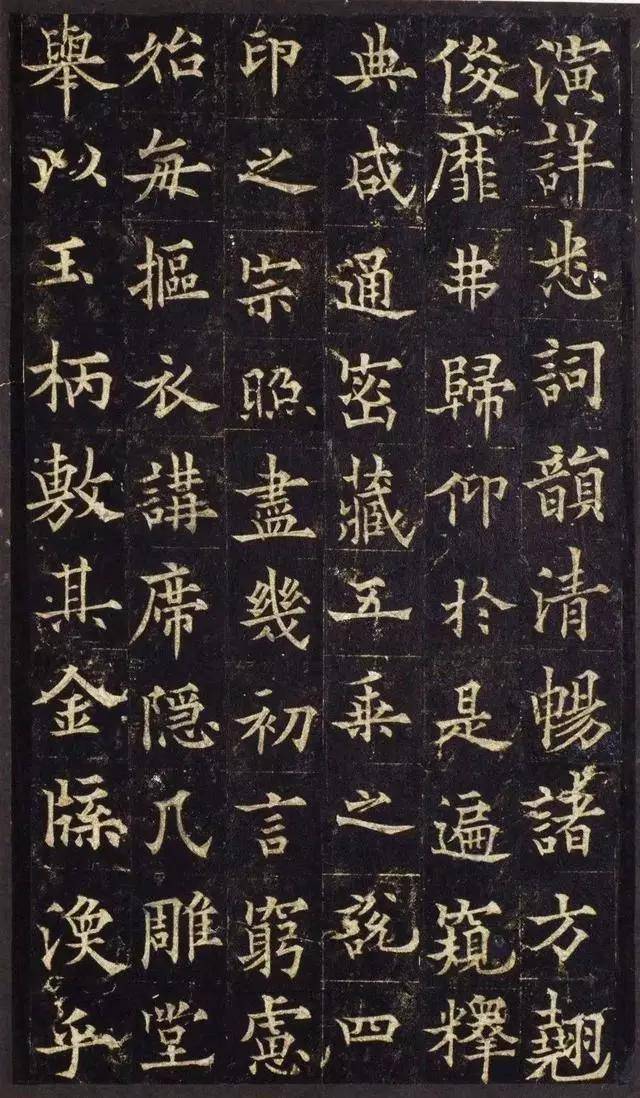 演詳悉詞韻清暢諸方翹
俊靡弗歸仰於是遍窺釋
典咸通密藏五乗之說四
印之宗照盡幾初言窮慮
始每摳衣講席隠几雕堂
舉以玉柄敷其金牒渙乎